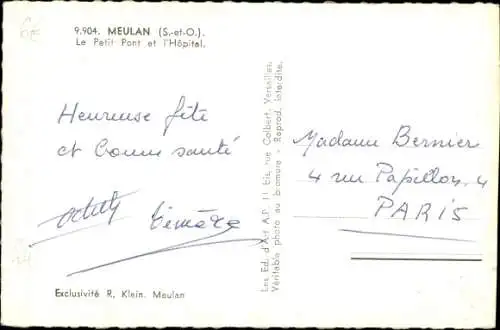 9.904. MEULAN (S.-et-O.).
Le Petit Pont et l'Hôpital.
Heureuse fête
et bonne santé
Exclusivité R. Klein. Meulan
Les Ed. d'Art A.P. 11 bis, rue Colbert, Versailles.
Véritable photo au bromure - Reprod. interdite.
Madame Bernier
4 rue Papillon. 4
PARIS